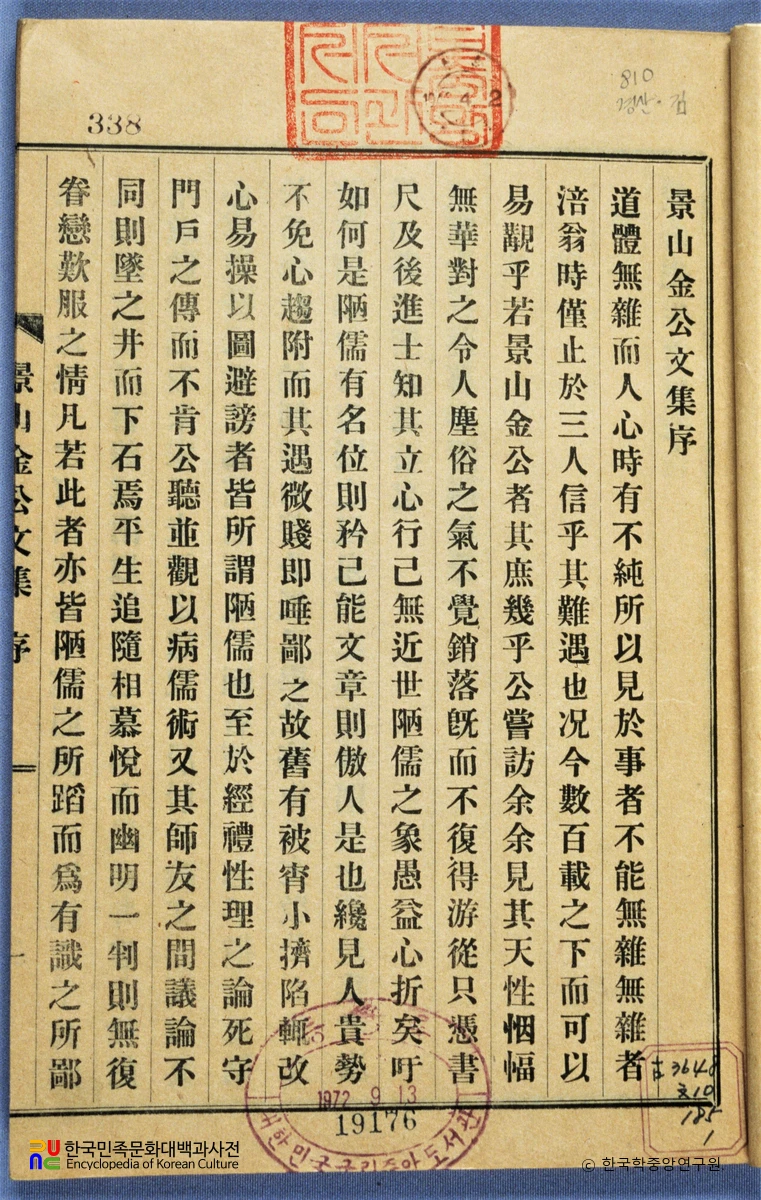 景山金公文集序
道體無雜而人心時有不純所以見於事者不能無雜無雜者
涪翁時僅止於三人信乎其難遇也况今數百載之下而可以
易觀乎若景山金公者其庶幾乎公嘗訪余余見其天性悃愊
無華對之令人塵俗之氣不覺銷落旣而不復得游從只憑書
尺及後進士知其立心行己無近世陋儒之象愚益心折矣吁
如何是陋儒有名位則矜己能文章則傲人是也纔見人貴勢
不免心趨附而其遇微賤即唾鄙之故舊有被宵小擠陷輒改
心易操以圖避謗者皆所謂陋儒也至於經禮性理之論死守
門戶之傳而不肯公聽並觀以病儒術又其師友之間議論不
同則墜之井而下石焉平生追隨相慕悅而幽明一判則無復
眷戀歎服之情凡若此者亦皆陋儒之所蹈而爲有識之所鄙
景山金公文集 序
一
338
810
경산·김
古3648
文10
185
1
1972 9. 13
19176
대한민국국립중앙도서관
한국민족문화대백과사전
Encyclopedia of Korean Culture
© 한국학중앙연구원